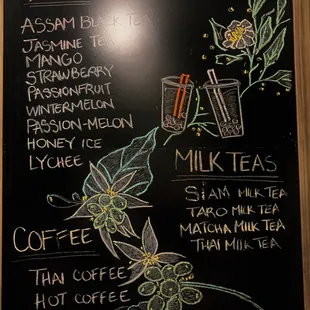 ASSAM BLACK TEA
JASMINE TEA
MANGO
STRAWBERRY
PASSIONFRUIT
WINTERMELON
PASSION-MELON
HONEY ICE
LYCHEE
MILK TEAS
SIAM MILK TEA
TARO MILK TEA
MATCHA MILK TEA
THAI MILK TEA
COFFEE
THAI COFFEE
HOT COFFEE